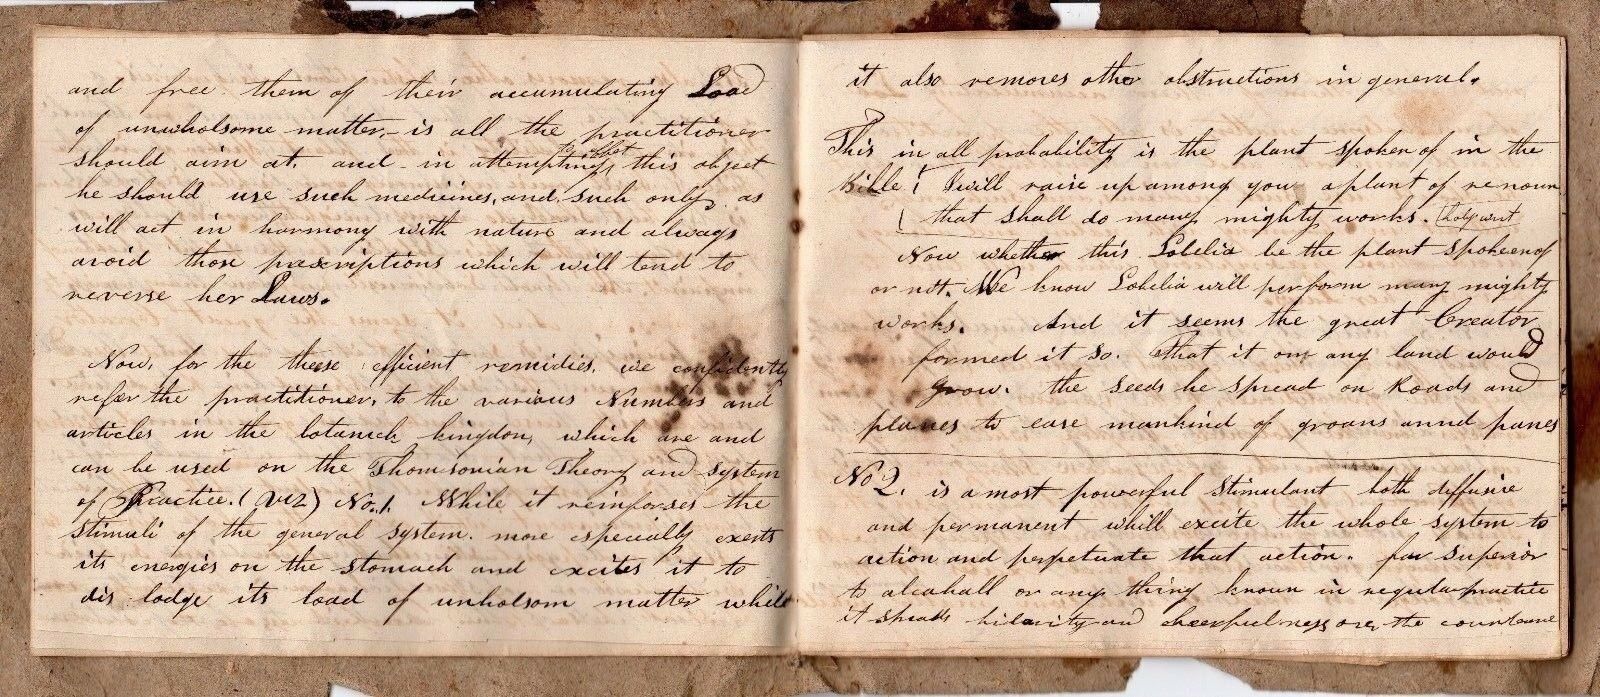 and free them of their accumulating Load
of unwholsome matter,- is all the practitioner
should aim at. and - in attempting this object
he should use such medicines, and such only as
will act in harmony with nature and always
avoid those prescriptions which will tend to
reverse her Laws.
Now, for the these efficient remidies, we confidently
refer the practitioner, to the various Numbers and
articles in the botanick kingdon, which are and
can be used on the Thomsonian Theory and system
of Practice. (viz) No. 1. While it reinforses the
stimuli of the general system. more especially exerts
its energies on the stomach and excites it to
dis lodge its load of unholsom matter while
it also removes other obstructions in general.
This in all probability is the plant spoken of in the
Bible! I will raise up among you a plant of renoun
that shall do many mighty works. Holy writ
Now whether this Lobelia be the plant spokeen of
or not. We know Lobelia will perform many mighty
works. And it seems the great Creator
formed it so. That it on any land would
grow. the seeds he spread on Roads and
planes to ease mankind of groans annd panes
No 2. is a most powerful stimulant both diffusive
and permanent whill excite the whole system to
action and perpetuate that action. far superior
to alcahall or any thing known in regular practice
it spreads hilarity and cheerfulness over the countenance